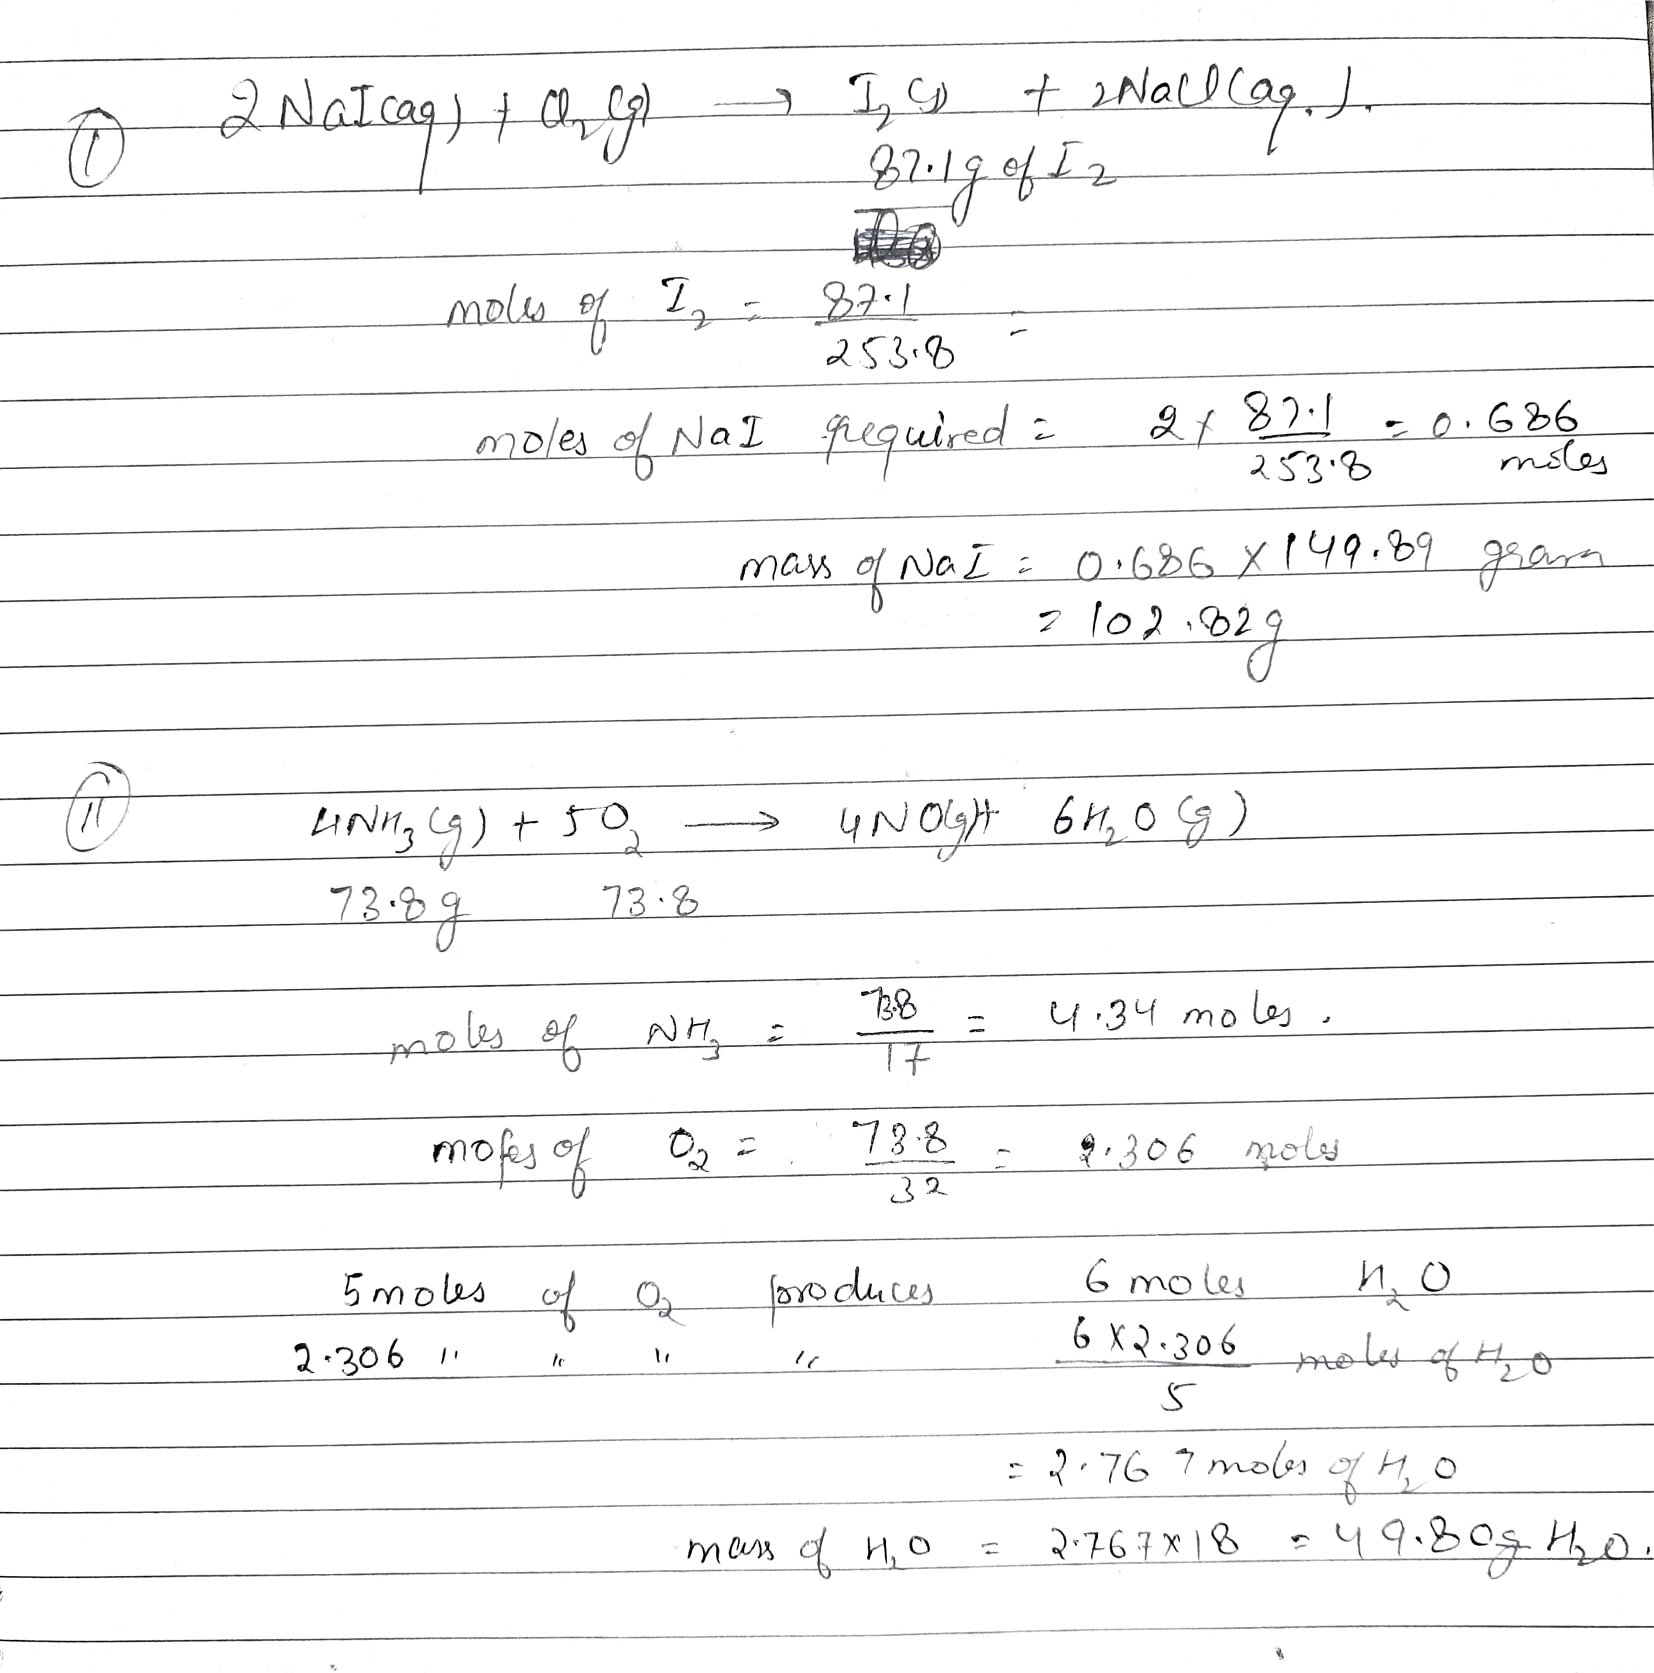 I 2NaI(aq) + Cl₂(g) → I₂(s) + 2NaCl(aq.).
87.1g of I₂
moles of I₂ = 87.1/253.8 =
moles of NaI required = 2 × 87.1/253.8 = 0.686 moles
mass of NaI = 0.686 × 149.89 gram
= 102.82g
II 4NH₃(g) + 5O₂ → 4NO(g)+ 6H₂O(g)
73.8g 73.8
moles of NH₃ = 73.8/17 = 4.34 moles.
moles of O₂ = 73.8/32 = 2.306 moles
5moles of O₂ produces 6 moles H₂O
2.306 " " " " 6×2.306/5 moles of H₂O
= 2.767 moles of H₂O
mass of H₂O = 2.767×18 = 49.80g H₂O.